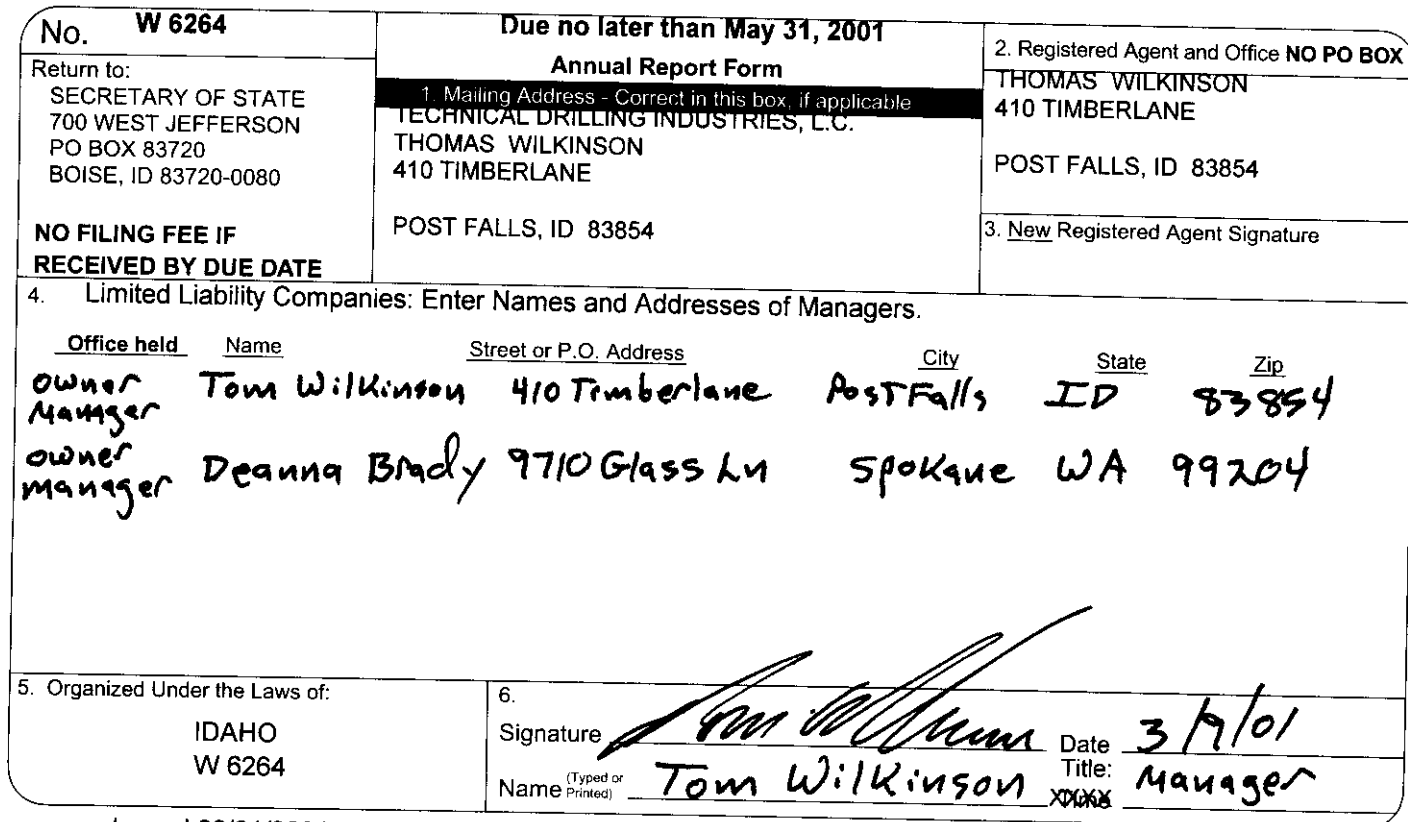 No. W 6264
Return to:
SECRETARY OF STATE
700 WEST JEFFERSON
PO BOX 83720
BOISE, ID 83720-0080
NO FILING FEE IF
RECEIVED BY DUE DATE
Due no later than May 31, 2001
Annual Report Form
1. Mailing Address - Correct in this box, if applicable
TECHNICAL DRILLING INDUSTRIES, L.C.
THOMAS WILKINSON
410 TIMBERLANE
POST FALLS, ID 83854
2. Registered Agent and Office NO PO BOX
THOMAS WILKINSON
410 TIMBERLANE
POST FALLS, ID 83854
3. New Registered Agent Signature
4. Limited Liability Companies: Enter Names and Addresses of Managers.
Office held Name Street or P.O. Address City State Zip
owner
Manager Tom Wilkinson 410 Timberlane Post Falls ID 83854
owner
manager Deanna Brady 9710 Glass Ln Spokane WA 99204
5. Organized Under the Laws of:
IDAHO
W 6264
6.
Signature Date 3/9/01
Name (Typed or Printed) Tom Wilkinson Title: Manager